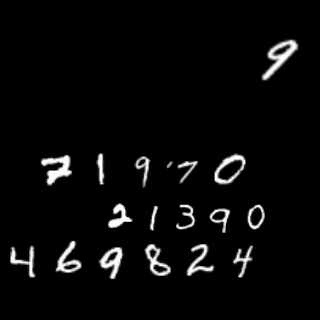 9
71970
21390
469824